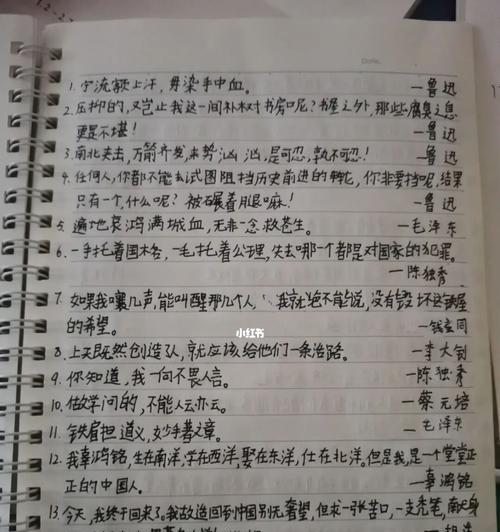 Date.
1. 宁流额上汗，毋染手中血。 —鲁迅
2. 压抑的，又岂止我这一间补树书房呢？书屋之外，那些腐臭之息
更是不堪！ —鲁迅
3. 南北夹击，万箭齐发，来势汹汹，是可忍，孰不可忍！ —鲁迅
4. 任何人，你都不能去试图阻挡历史前进的轮，你非要挡呢，结果
只有一个，什么呢？被碾着腿嘛！ —鲁迅
5. 遍地哀鸿满城血，无非一念救苍生。 —毛泽东
6. 一手托着国格，一手托着公理，失去哪一个都是对国家的犯罪。
—陈独秀
7. 如果我嚷几声，能叫醒那几个人，我就绝不能说，没有毁坏这铁屋
的希望。 —钱玄同
8. 上天既然创造了人，就应该给他们一条活路。 —李大钊
9. 你知道，我一向不畏人言。 —陈独秀
10. 做学问的，不能人云亦云。 —蔡元培
11. 铁肩担道义，妙手著文章。 —毛泽东
12. 我辜鸿铭，生在南洋，学在西洋，娶在东洋，仕在北洋。但是我，是一个堂堂正
正的中国人。 —辜鸿铭
13. 今天，我终于回来了。我故返回中国别无奢望，但求一张苦口，一支秃笔，
小红书